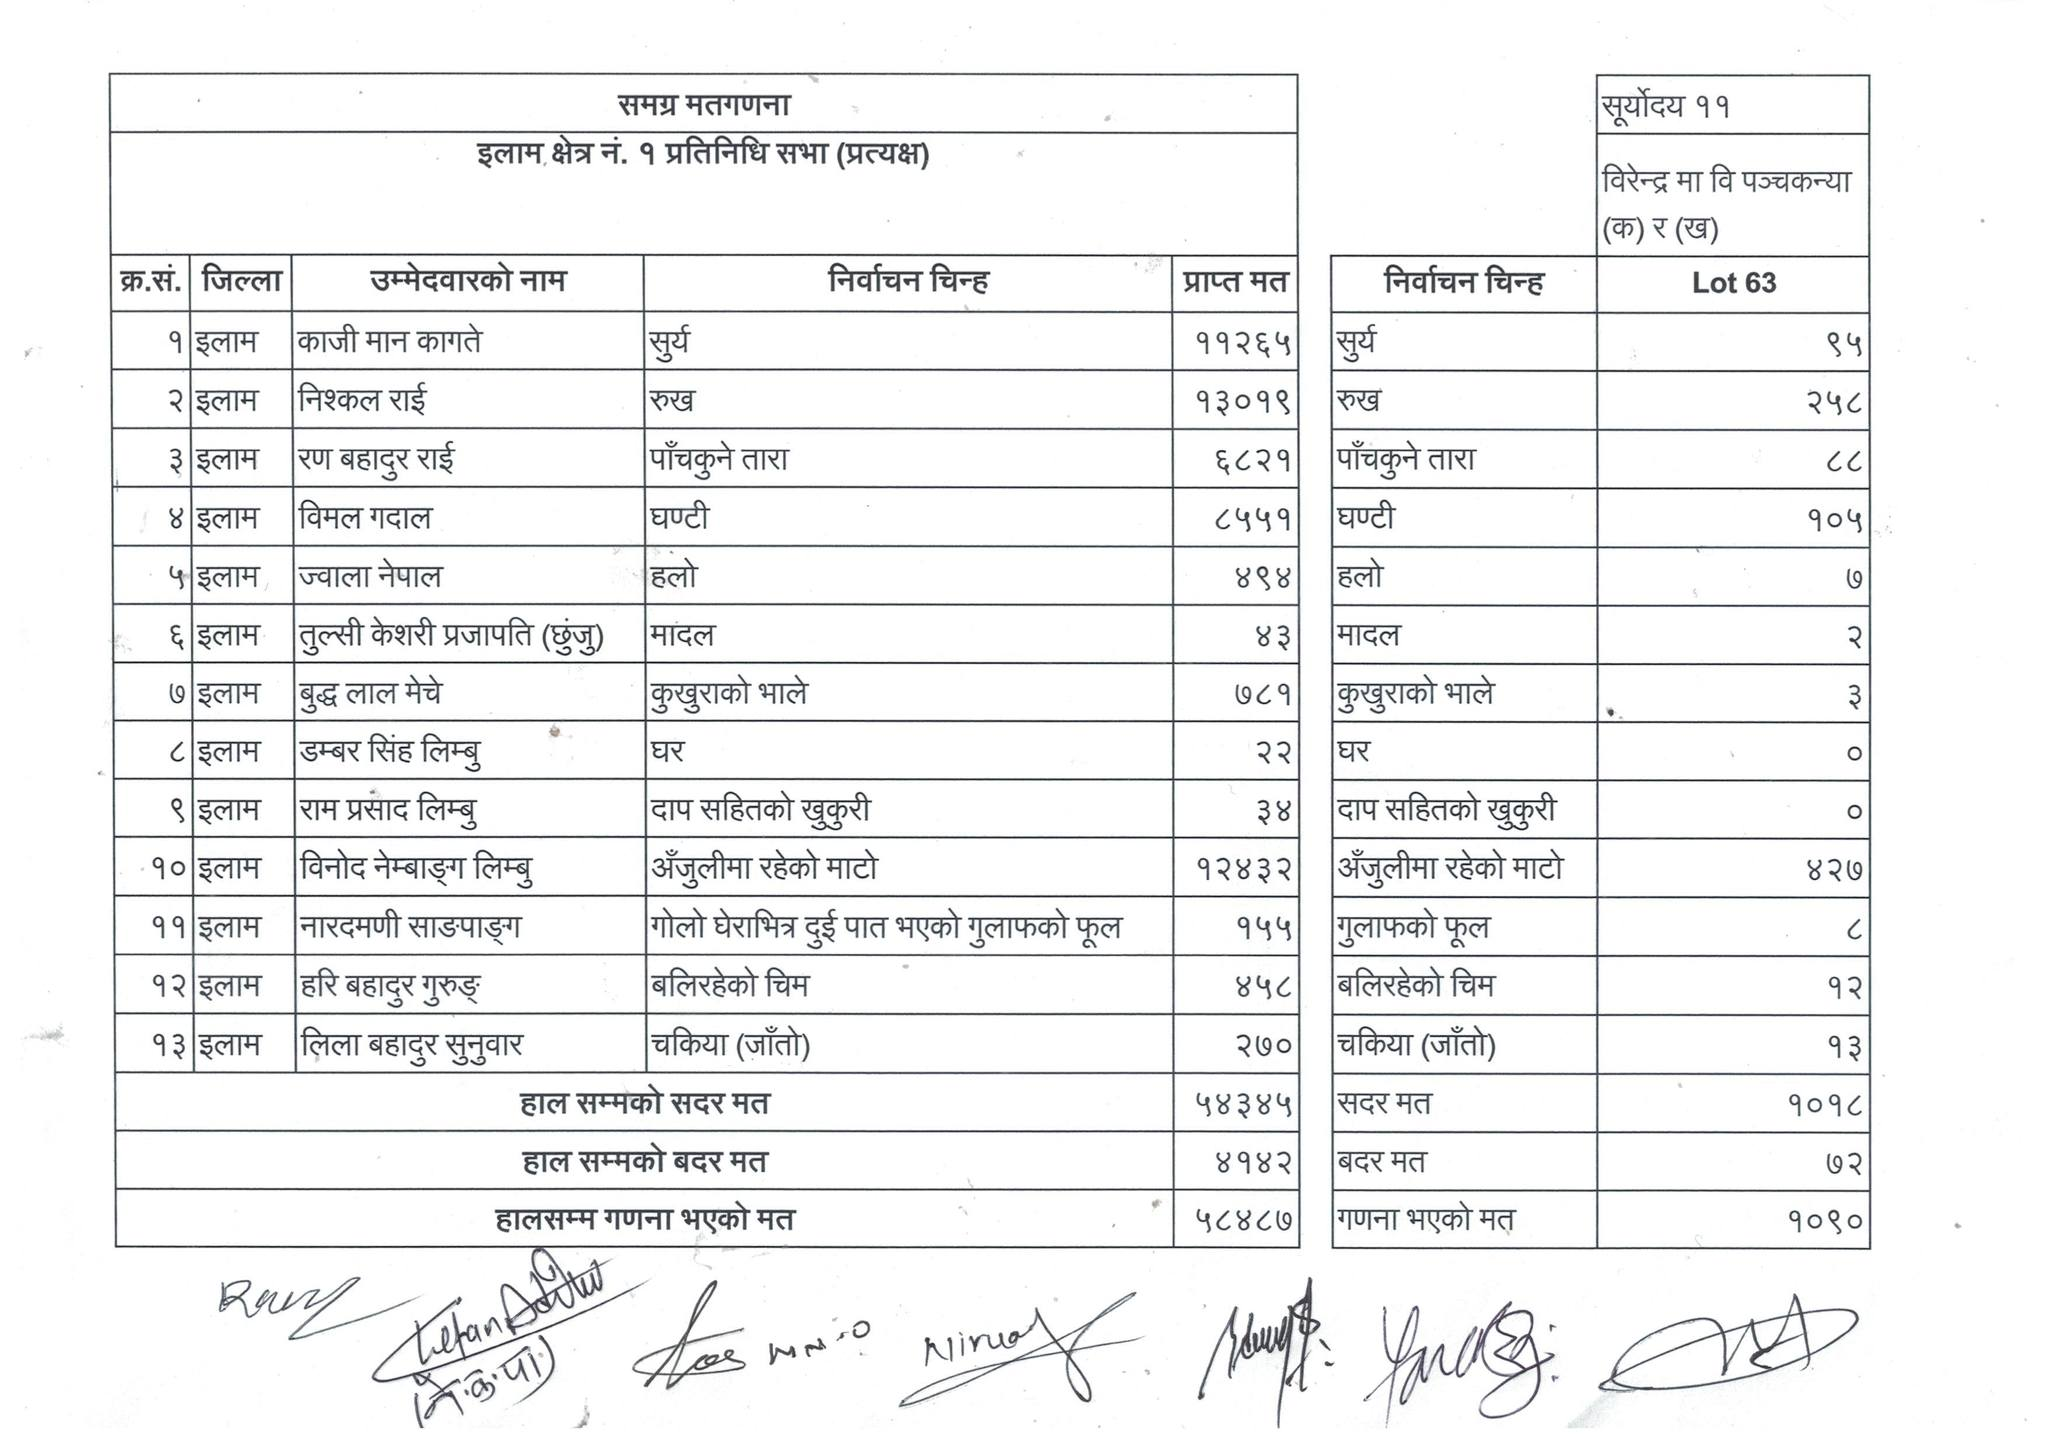 समग्र मतगणना
इलाम क्षेत्र नं. १ प्रतिनिधि सभा (प्रत्यक्ष)
क्र.सं. जिल्ला उम्मेदवारको नाम निर्वाचन चिन्ह प्राप्त मत
१ इलाम काजी मान कागते सुर्य ११२६५
२ इलाम निश्कल राई रुख १३०१९
३ इलाम रण बहादुर राई पाँचकुने तारा ६८२१
४ इलाम विमल गदाल घण्टी ८५५१
५ इलाम ज्वाला नेपाल हलो ४९४
६ इलाम तुल्सी केशरी प्रजापति (छुंजु) मादल ४३
७ इलाम बुद्ध लाल मेचे कुखुराको भाले ७८१
८ इलाम डम्बर सिंह लिम्बु घर २२
९ इलाम राम प्रसाद लिम्बु दाप सहितको खुकुरी ३४
१० इलाम विनोद नेम्बाङ्ग लिम्बु अँजुलीमा रहेको माटो १२४३२
११ इलाम नारदमणी साङपाङ्ग गोलो घेराभित्र दुई पात भएको गुलाफको फूल १५५
१२ इलाम हरि बहादुर गुरुङ् बलिरहेको चिम ४५८
१३ इलाम लिला बहादुर सुनुवार चकिया (जाँतो) २७०
हाल सम्मको सदर मत ५४३४५
हाल सम्मको बदर मत ४१४२
हालसम्म गणना भएको मत ५८४८७
सूर्योदय ११
विरेन्द्र मा वि पञ्चकन्या
(क) र (ख)
निर्वाचन चिन्ह Lot 63
सुर्य ९५
रुख २५८
पाँचकुने तारा ८८
घण्टी १०५
हलो ७
मादल २
कुखुराको भाले ३
घर ०
दाप सहितको खुकुरी ०
अँजुलीमा रहेको माटो ४२७
गुलाफको फूल ८
बलिरहेको चिम १२
चकिया (जाँतो) १३
सदर मत १०१८
बदर मत ७२
गणना भएको मत १०९०
(ने.क.पा)